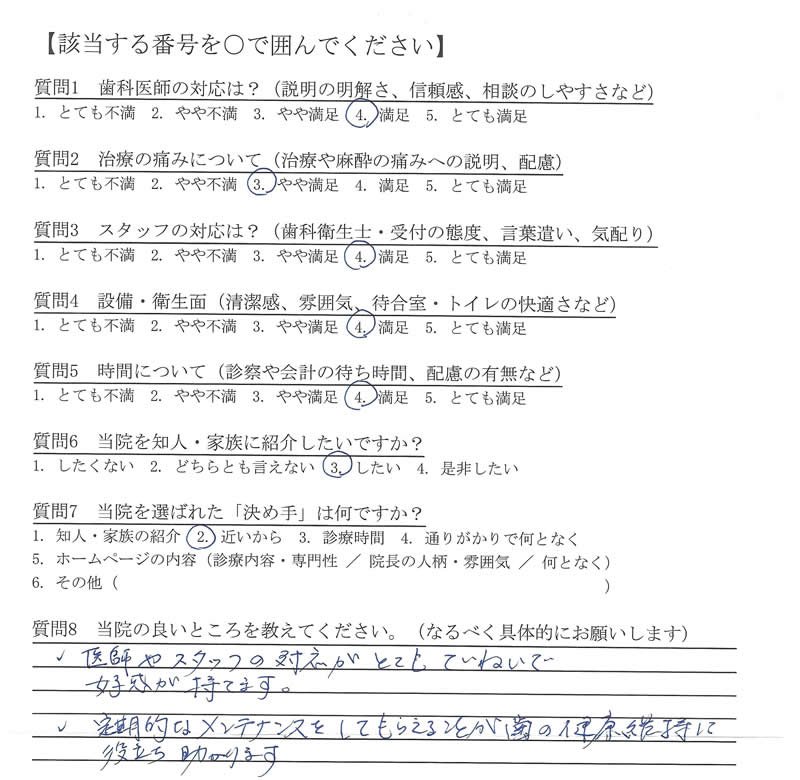 【該当する番号を○で囲んでください】
質問1 歯科医師の対応は?(説明の明解さ、信頼感、相談のしやすさなど)
1. とても不満 2. やや不満 3. やや満足 4. 満足 5. とても満足
質問2 治療の痛みについて(治療や麻酔の痛みへの説明、配慮)
1. とても不満 2. やや不満 3. やや満足 4. 満足 5. とても満足
質問3 スタッフの対応は?(歯科衛生士・受付の態度、言葉遣い、気配り)
1. とても不満 2. やや不満 3. やや満足 4. 満足 5. とても満足
質問4 設備・衛生面(清潔感、雰囲気、待合室・トイレの快適さなど)
1. とても不満 2. やや不満 3. やや満足 4. 満足 5. とても満足
質問5 時間について(診察や会計の待ち時間、配慮の有無など)
1. とても不満 2. やや不満 3. やや満足 4. 満足 5. とても満足
質問6 当院を知人・家族に紹介したいですか?
1. したくない 2. どちらとも言えない 3. したい 4. 是非したい
質問7 当院を選ばれた「決め手」は何ですか?
1. 知人・家族の紹介 2. 近いから 3. 診療時間 4. 通りがかりで何となく
5. ホームページの内容(診療内容・専門性 / 院長の人柄・雰囲気 / 何となく)
6. その他( )
質問8 当院の良いところを教えてください。(なるべく具体的にお願いします)
✓ 医師やスタッフの対応がとてもていねいで
好感が持てます。
✓ 定期的なメンテナンスをしてもらえることが歯の健康維持に
役立ち助かります